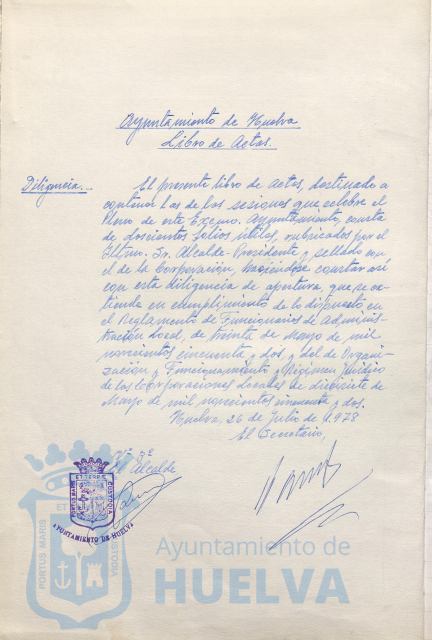 Ayuntamiento de Huelva
Libro de Actas.
Diligencia...
El presente libro de Actas, destinado a
contener las de las sesiones que celebre el
Pleno de este Excmo. Ayuntamiento, consta
de doscientos folios útiles, rubricados por el
Iltmo. Sr. Alcalde-Presidente y sellado con
el de la Corporación, haciéndose constar así
con esta diligencia de apertura, que se ex-
tiende en cumplimiento de lo dispuesto en
el Reglamento de Funcionarios de Adminis-
tración Local, de treinta de Mayo de mil
novecientos cincuenta y dos y del de Organi-
zación y Funcionamiento y Régimen Jurídico
de las Corporaciones Locales de diecisiete de
Mayo de mil novecientos cincuenta y dos.
Huelva, 26 de Julio de 1.978
El Secretario,
Vº Bº
El Alcalde
PORTUS MARIS ET TERRE CUSTODIA
AYUNTAMIENTO DE HUELVA
PORTUS MARIS
Ayuntamiento de
HUELVA